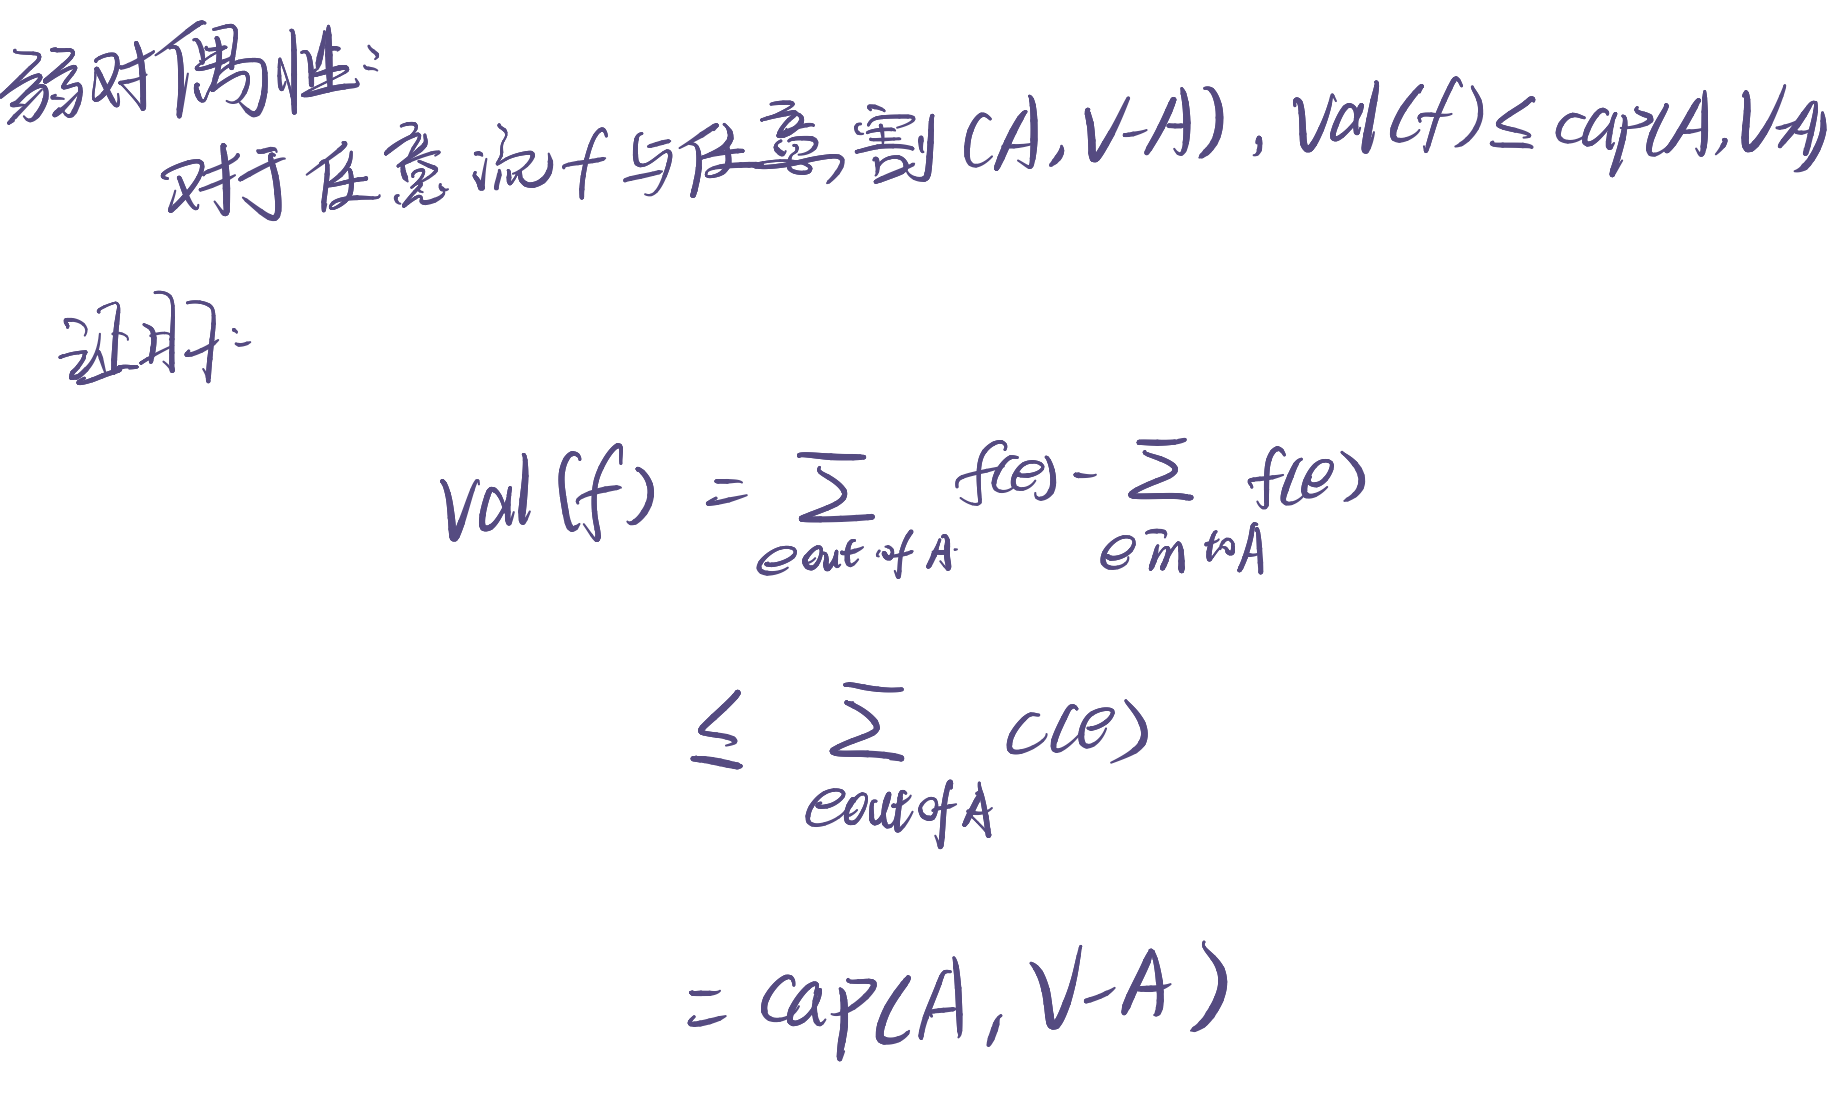 弱对偶性:
对于任意流f与任意割(A, V-A), val(f) ≤ cap(A, V-A)
证明:
val(f) = ∑ f(e) - ∑ f(e)
e out of A e in to A
≤ ∑ c(e)
e out of A
= cap(A, V-A)